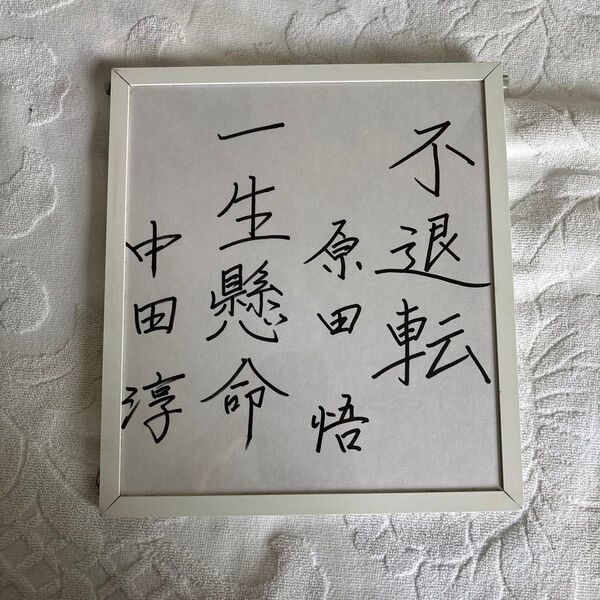 不退転
原田 悟
一生懸命
中田 淳